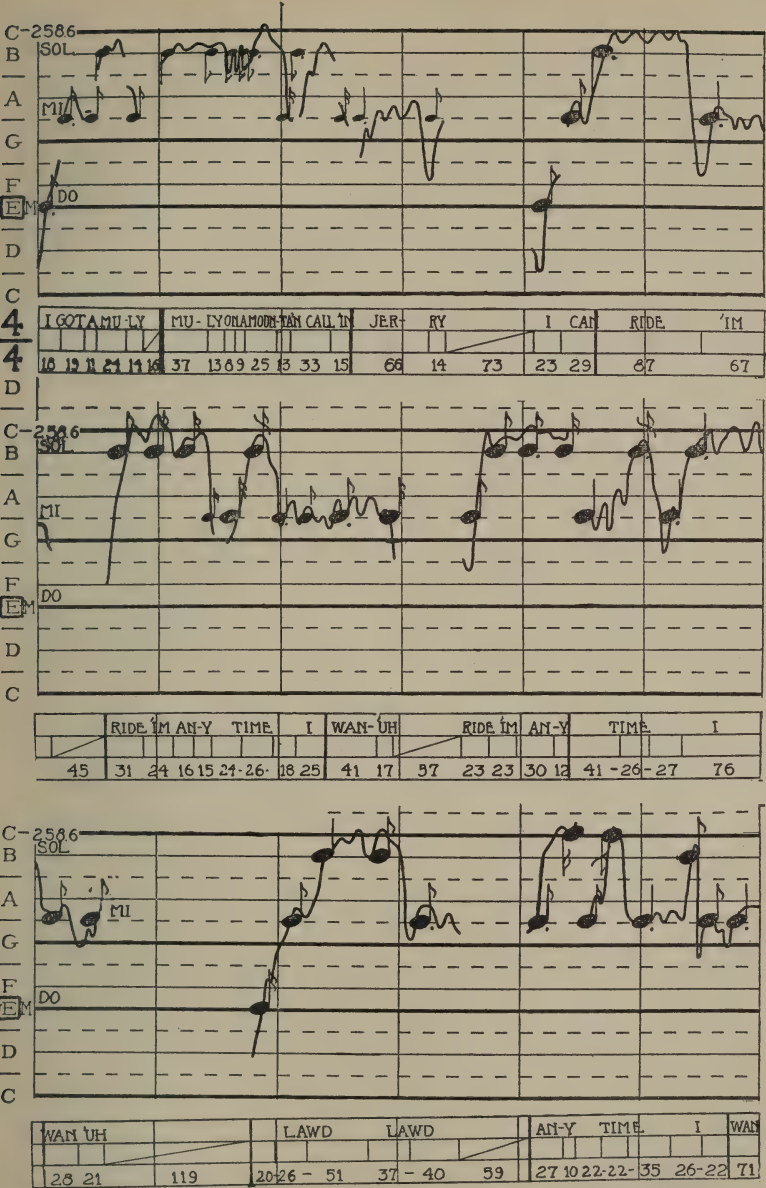 C-258.6
B SOL
A
MI
G
F
E M DO
D
C
4
4
I GOT A MU-LY MU-LY ON A MOUN-TAN CALL 'IM JER- RY I CAN RIDE 'IM
18 19 11 24 14 16 37 13 8 9 25 13 33 15 66 14 73 23 29 87 67
D
C-258.6
B SOL
A
MI
G
F
E M DO
D
C
RIDE 'IM AN-Y TIME I WAN-'UH RIDE 'IM AN-Y TIME I
45 31 24 16 15 24-26- 18 25 41 17 57 23 23 30 12 41-26-27 76
C-258.6
B SOL
A MI
G
F
E M DO
D
C
WAN 'UH LAWD LAWD AN-Y TIME I WAN
28 21 119 20-26-51 37-40 59 27 10 22-22-35 26-22 71